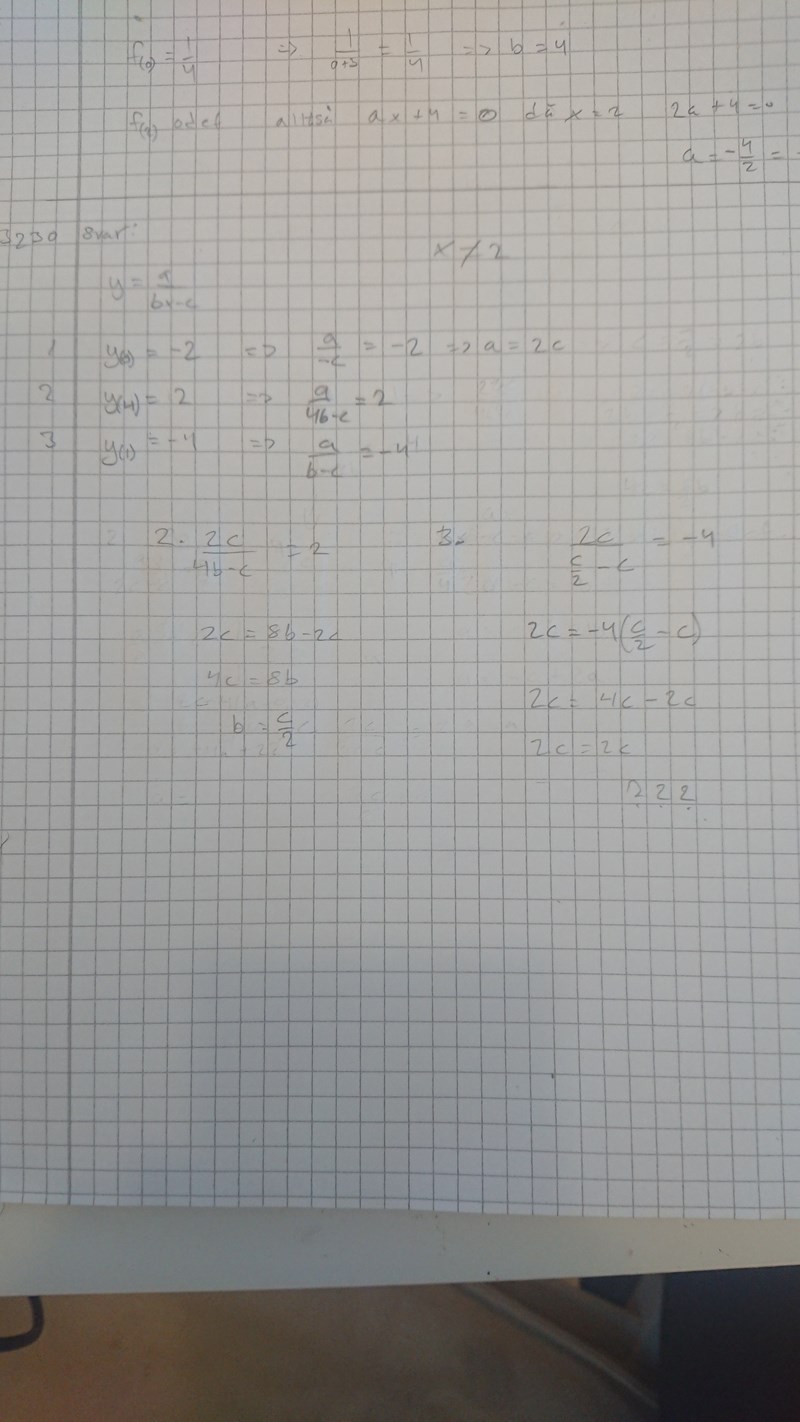 f(0) = 1/4 => 1/(0+b) = 1/4 => b = 4
f(x) odef alltså ax + 4 = 0 då x = 2 2a + 4 = 0
a = -4/2 =
3239 Svar: x ≠ 2
y = a/(bx-c)
1 y(0) = -2 => a/-c = -2 => a = 2c
2 y(4) = 2 => a/(4b-c) = 2
3 y(1) = -4 => a/(b-c) = -4
2. 2c/(4b-c) = 2 3. 2c/(c/2 - c) = -4
2c = 8b - 2c 2c = -4(c/2 - c)
4c = 8b 2c = 4c - 2c
b = c/2 2c = 2c
???